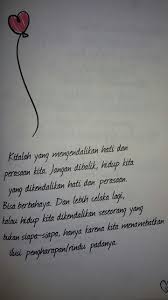 Kitalah yang mengendalikan hati dan
perasaan kita. Jangan dibalik, hidup kita
yang dikendalikan hati dan perasaan
Bisa berbahaya. Dan lebih celaka lagi,
kalau hidup kita dikendalikan seseorang yang
bukan siapa-siapa, hanya karena kita menambatkan
ilusi pengharapan/rindu padanya.